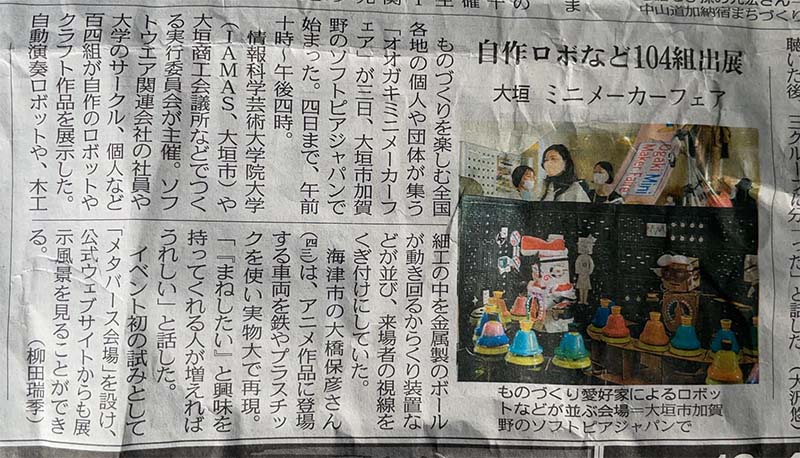 自作ロボなど104組出展
大垣 ミニメーカーフェア
ものづくりを楽しむ全国
各地の個人や団体が集う
「オオガキミニメーカーフ
ェア」が三日、大垣市加賀
野のソフトピアジャパンで
始まった。四日まで、午前
十時〜午後四時。
情報科学芸術大学院大学
(IAMAS、大垣市)や
大垣商工会議所などでつく
る実行委員会が主催。ソフ
トウエア関連会社の社員や
大学のサークル、個人など
百四組が自作のロボットや
クラフト作品を展示した。
自動演奏ロボットや、木工
細工の中を金属製のボール
が動き回るからくり装置な
どが並び、来場者の視線を
くぎ付けにしていた。
海津市の大橋保彦さん
(四三)は、アニメ作品に登場
する車両を鉄やプラスチッ
クを使い実物大で再現。
「『まねしたい』と興味を
持ってくれる人が増えれば
うれしい」と話した。
イベント初の試みとして
「メタバース会場」を設け、
公式ウェブサイトからも展
示風景を見ることができ
る。
(柳田瑞季)
Ogaki Mini
Maker Faire
ものづくり愛好家によるロボッ
トなどが並ぶ会場=大垣市加賀
野のソフトピアジャパンで
中山道加納宿まちづくり
聴いた後、三グループに分
った」と話した。
(大沢悠)